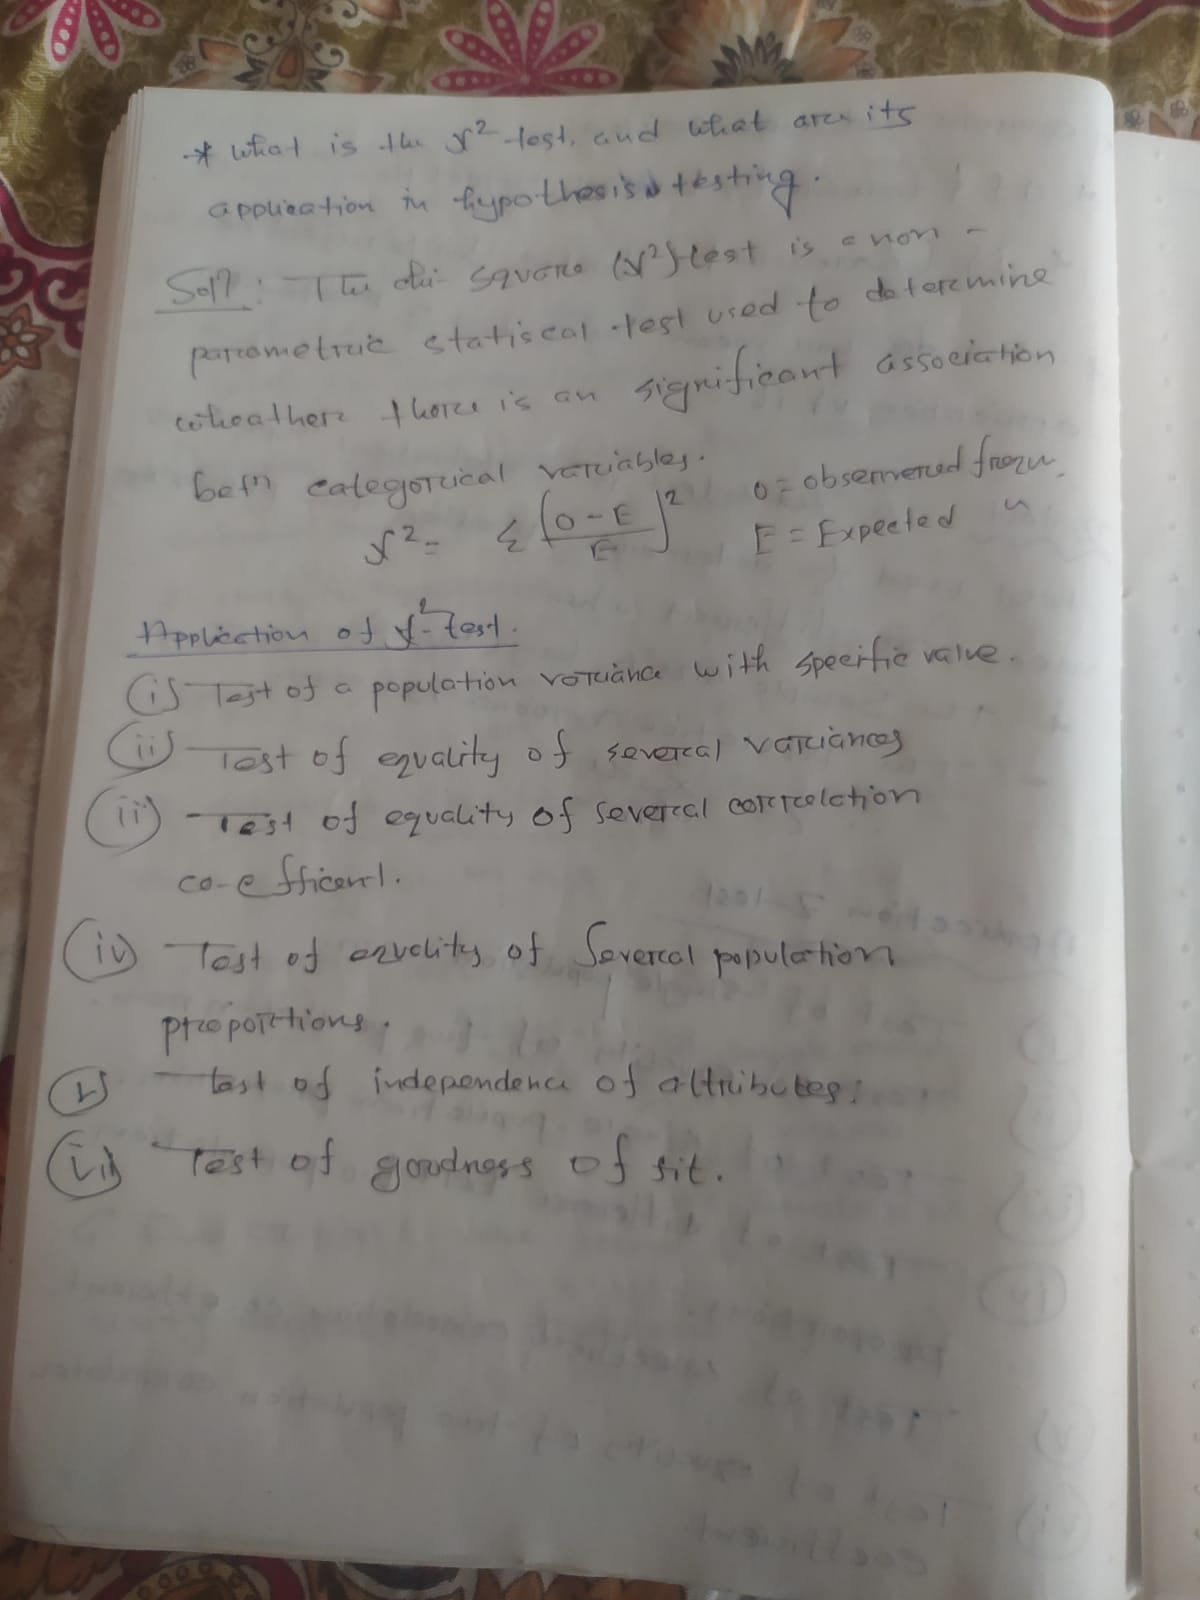 * What is the χ² test, and what are its
application in hypothesis testing.
Solⁿ: The chi-square (χ²) test is a non-
parametric statiscal test used to determine
wheather there is an significant association
betⁿ categorical variables.
χ² = Σ [(O-E)/E]²
O = observered frequ
E = Expected "
Application of χ²-test.
(i) Test of a population variance with specific value.
(ii) Test of equality of several variances
(iii) Test of equality of several correlation
co-efficent.
(iv) Test of equality of Several population
proportions.
(v) test of independence of attributes.
(vi) Test of goodness of fit.